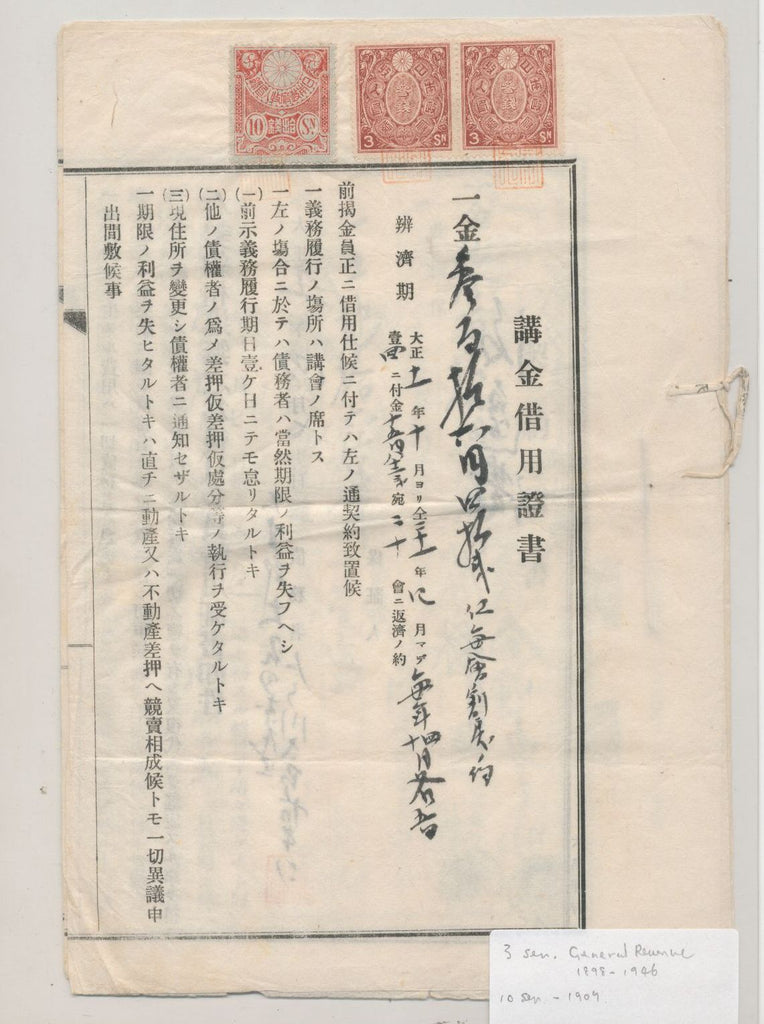 講金借用證書
一金參百拾六円四拾弐
辨濟期
大正十一年十月ヨリ仝 年 月マデ
壹 ニ付金 宛二十 會ニ返濟ノ約
毎年四月
十月
前揭金員正ニ借用仕候ニ付テハ左ノ通契約致置候
一義務履行ノ塲所ハ講會ノ席トス
一左ノ塲合ニ於テハ債務者ハ當然期限ノ利益ヲ失フヘシ
(一)前示義務履行期日壹ケ日ニテモ怠リタルトキ
(二)他ノ債權者ノ爲メ差押仮差押仮處分等ノ執行ヲ受ケタルトキ
(三)現住所ヲ變更シ債權者ニ通知セザルトキ
一期限ノ利益ヲ失ヒタルトキハ直チニ動產又ハ不動產差押ヘ競賣相成候トモ一切異議申
出間敷候事
10 Sn.
3 Sn
3 Sn
3 sen. General Revenue
1898-1946
10 sen. - 1909